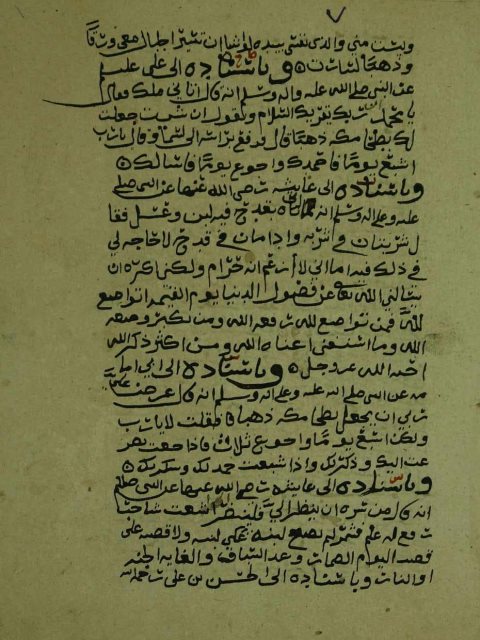 وليست مني والذي نفسي بيده لو اشا ان تسير الجبال معي ورقا
وذهبا لسارت وباسناده الى علي عليه
عن النبي صلى الله عليه واله وسلم انه قال اتاني ملك فقال
يا محمد ان ربك يقرئك السلام ويقول ان شئت جعلت
لك بطحا مكه ذهبا قال فرفع راسه الى السما وقال يا رب
اشبع يوما فاحمدك واجوع يوما فاسالك
وباسناده الى عايشه رضي الله عنها عن النبي صلى
عليه وعلى اله وسلم انه اتي بقدح فيه لبن وعسل فقا
ل شربتان في شربه وادامان في قدح لا حاجه لي
في ذلك فيه اما اني لا ازعم انه حرام ولكني اكره ان
يسالني الله تعالى عن فضول الدنيا يوم القيمه اتواضع
لله فمن تواضع لله رفعه الله ومن تكبر وضعه
الله وما استغنى اغناه الله ومن اكثر ذكر الله
احبه الله عز وجل وباسناده الى ابي اما
مه عن النبي صلى الله عليه وعلى اله وسلم انه قال عرض علي
ربي ان يجعل بطحا مكه ذهبا فقلت لا يا رب
ولكن اشبع يوما واجوع ثلاث فاذا جعت تضر
عت اليك وذكرتك واذا شبعت حمدتك وشكرتك
وباسناده الى عايشه رضي الله عنها عن النبي صلى
انه قال من سره ان ينظر الي فلينظر الى اشعث شاحبا
رفع له علم فشمر اليه لم يضع لبنه على لبنه ولا قصبه على
قصبه اليوم المضمار وغدا السباق والغايه الجنه
او النار وباسناده الى الحسن بن علي رحمه الله